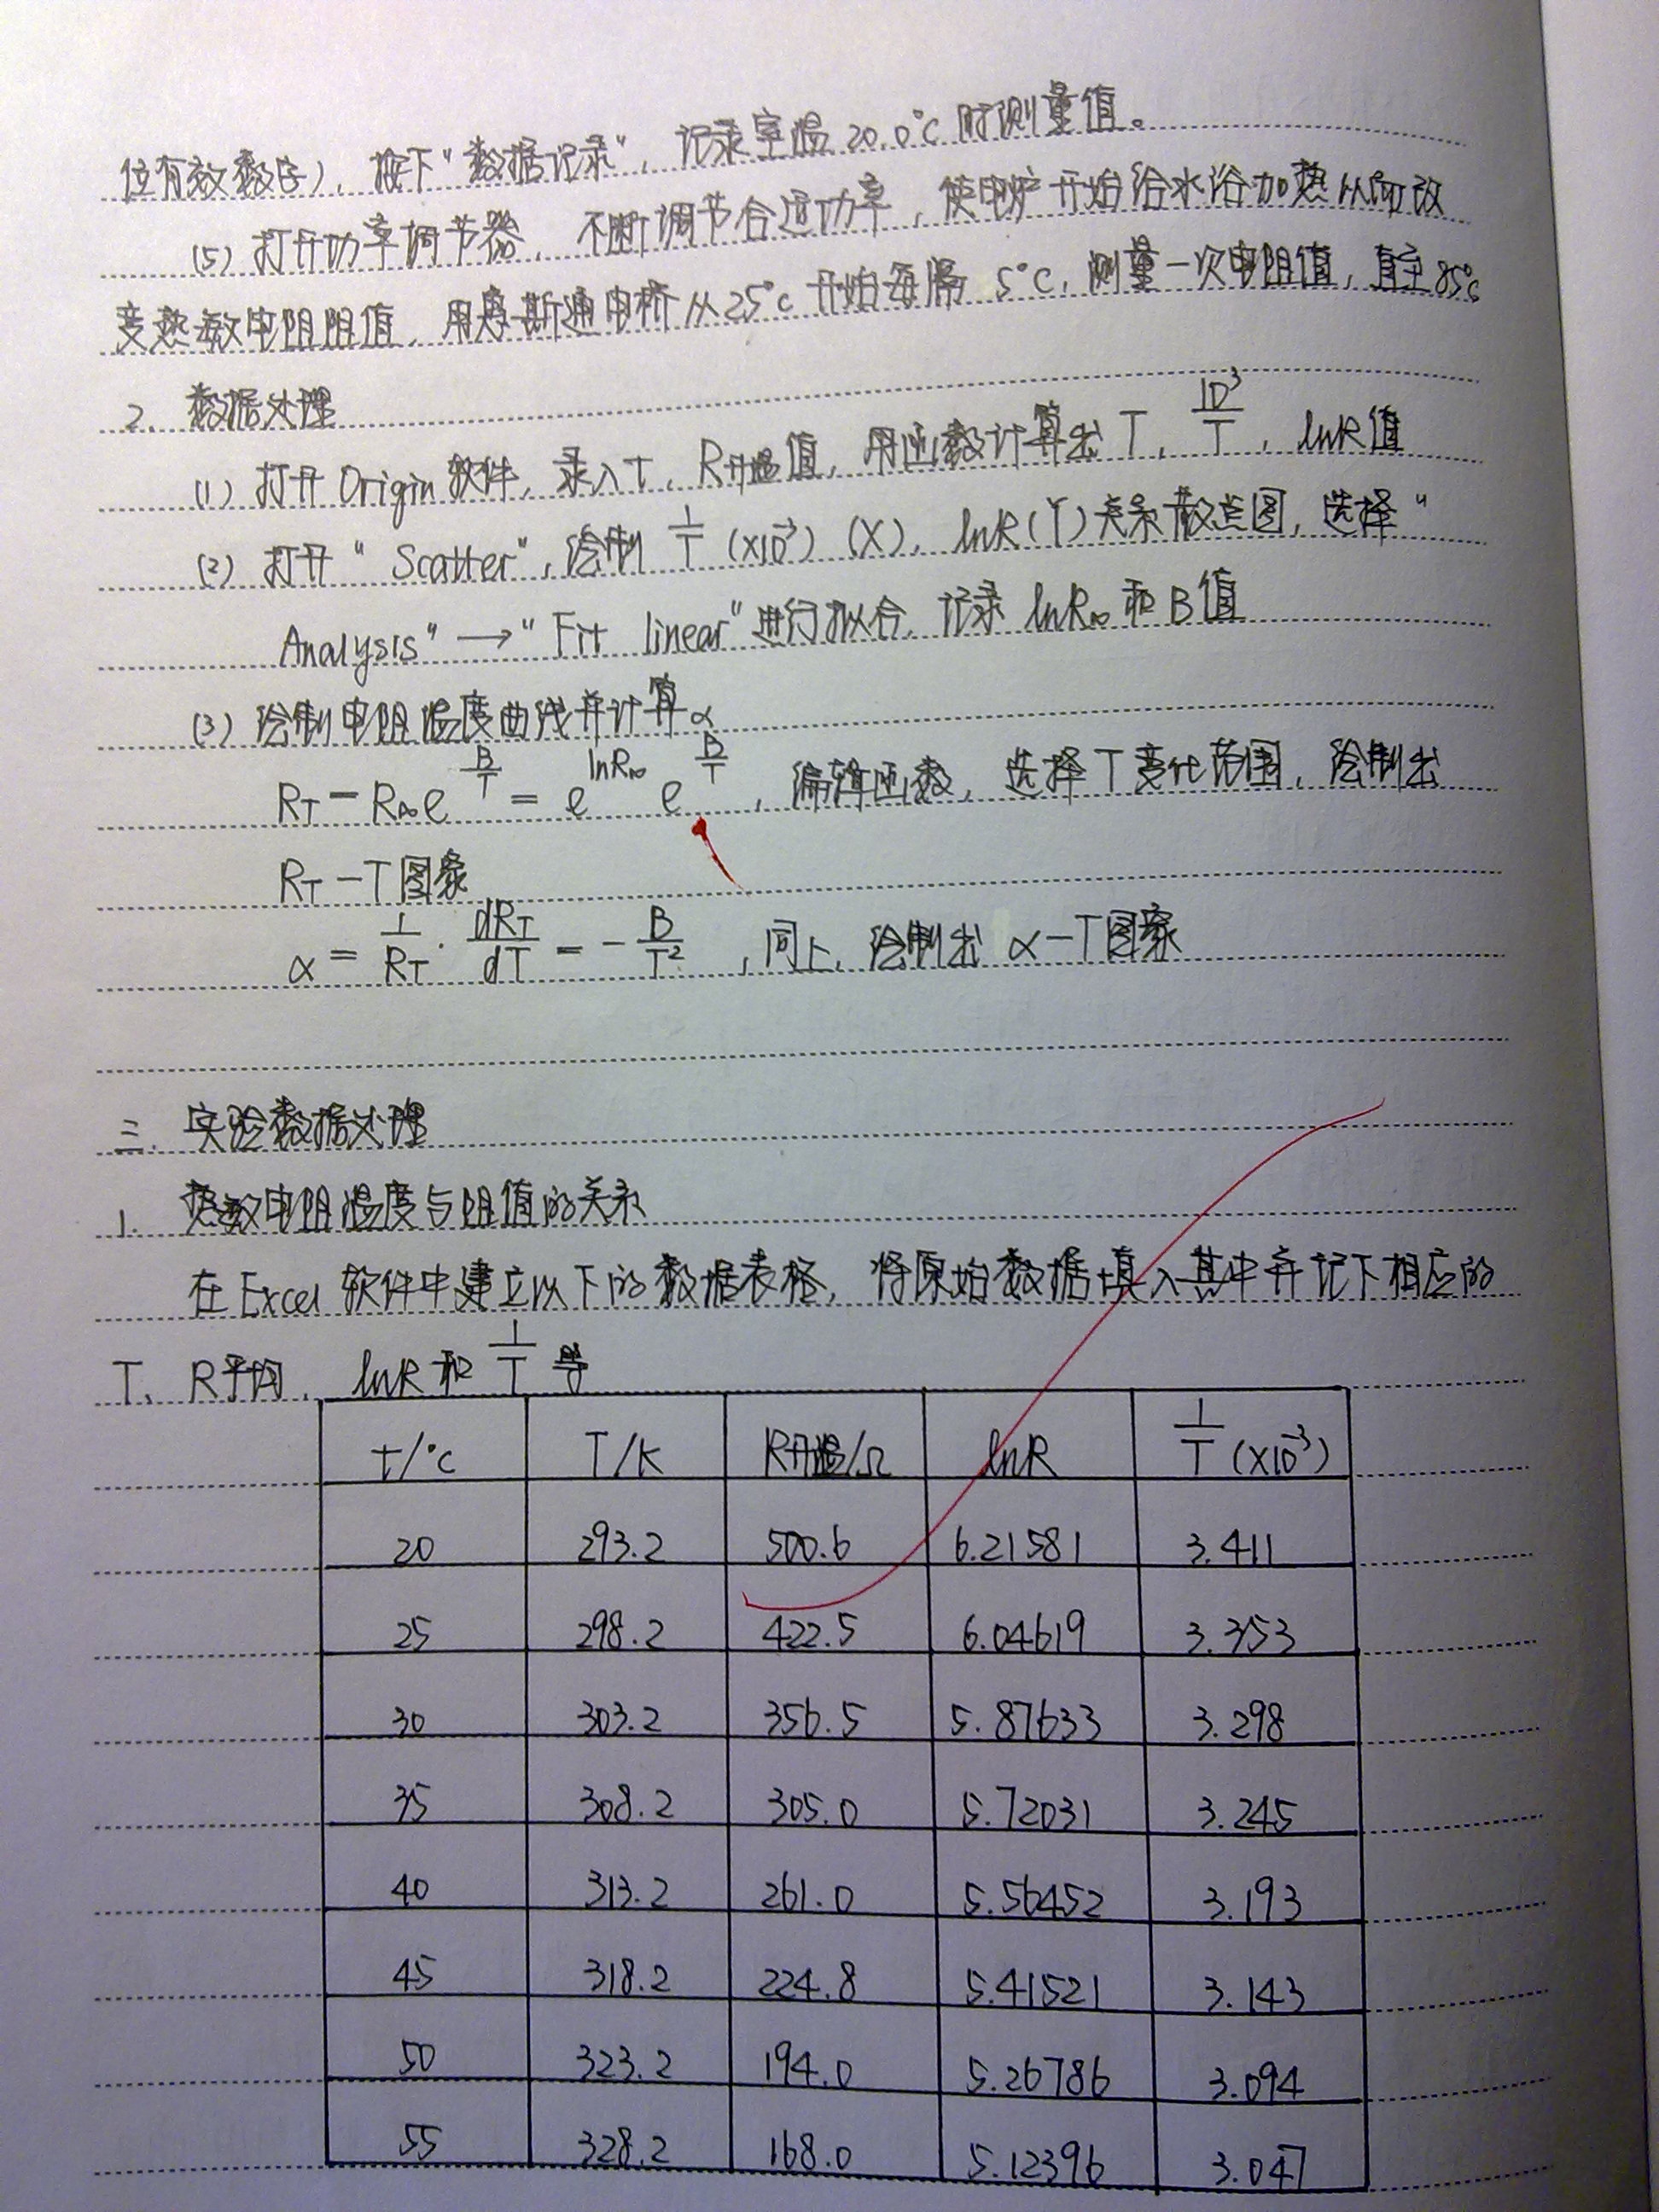 位有效数字），按下“数据记录”，记录室温20.0°C时测量值。
(5) 打开功率调节器，不断调节合适功率，使电炉开始给水浴加热从而改
变热敏电阻阻值，用惠斯通电桥从25°C开始每隔5°C，测量一次电阻值，直至85°C
2. 数据处理
(1) 打开Origin软件，录入t、R升温值，用函数计算出T、10³/T、lnR值
(2) 打开“Scatter”，绘制1/T(×10⁻³)(X)，lnR(Y)关系散点图，选择“
Analysis”→“Fit linear”进行拟合，记录lnR∞和B值
(3) 绘制电阻温度曲线并计算α
R_T = R∞e^(B/T) = e^(lnR∞) e^(B/T)，编辑函数，选择T变化范围，绘制出
R_T-T图象
α = 1/R_T · dR_T/dT = -B/T²，同上，绘制出α-T图象
三. 实验数据处理
1. 热敏电阻温度与阻值的关系
在Excel软件中建立以下的数据表格，将原始数据填入其中并记下相应的
T、R平均、lnR和1/T等
t/°C T/K R升温/Ω lnR 1/T(×10⁻³)
20 293.2 500.6 6.21581 3.411
25 298.2 422.5 6.04619 3.353
30 303.2 356.5 5.87633 3.298
35 308.2 305.0 5.72031 3.245
40 313.2 261.0 5.56452 3.193
45 318.2 224.8 5.41521 3.143
50 323.2 194.0 5.26786 3.094
55 328.2 168.0 5.12396 3.047